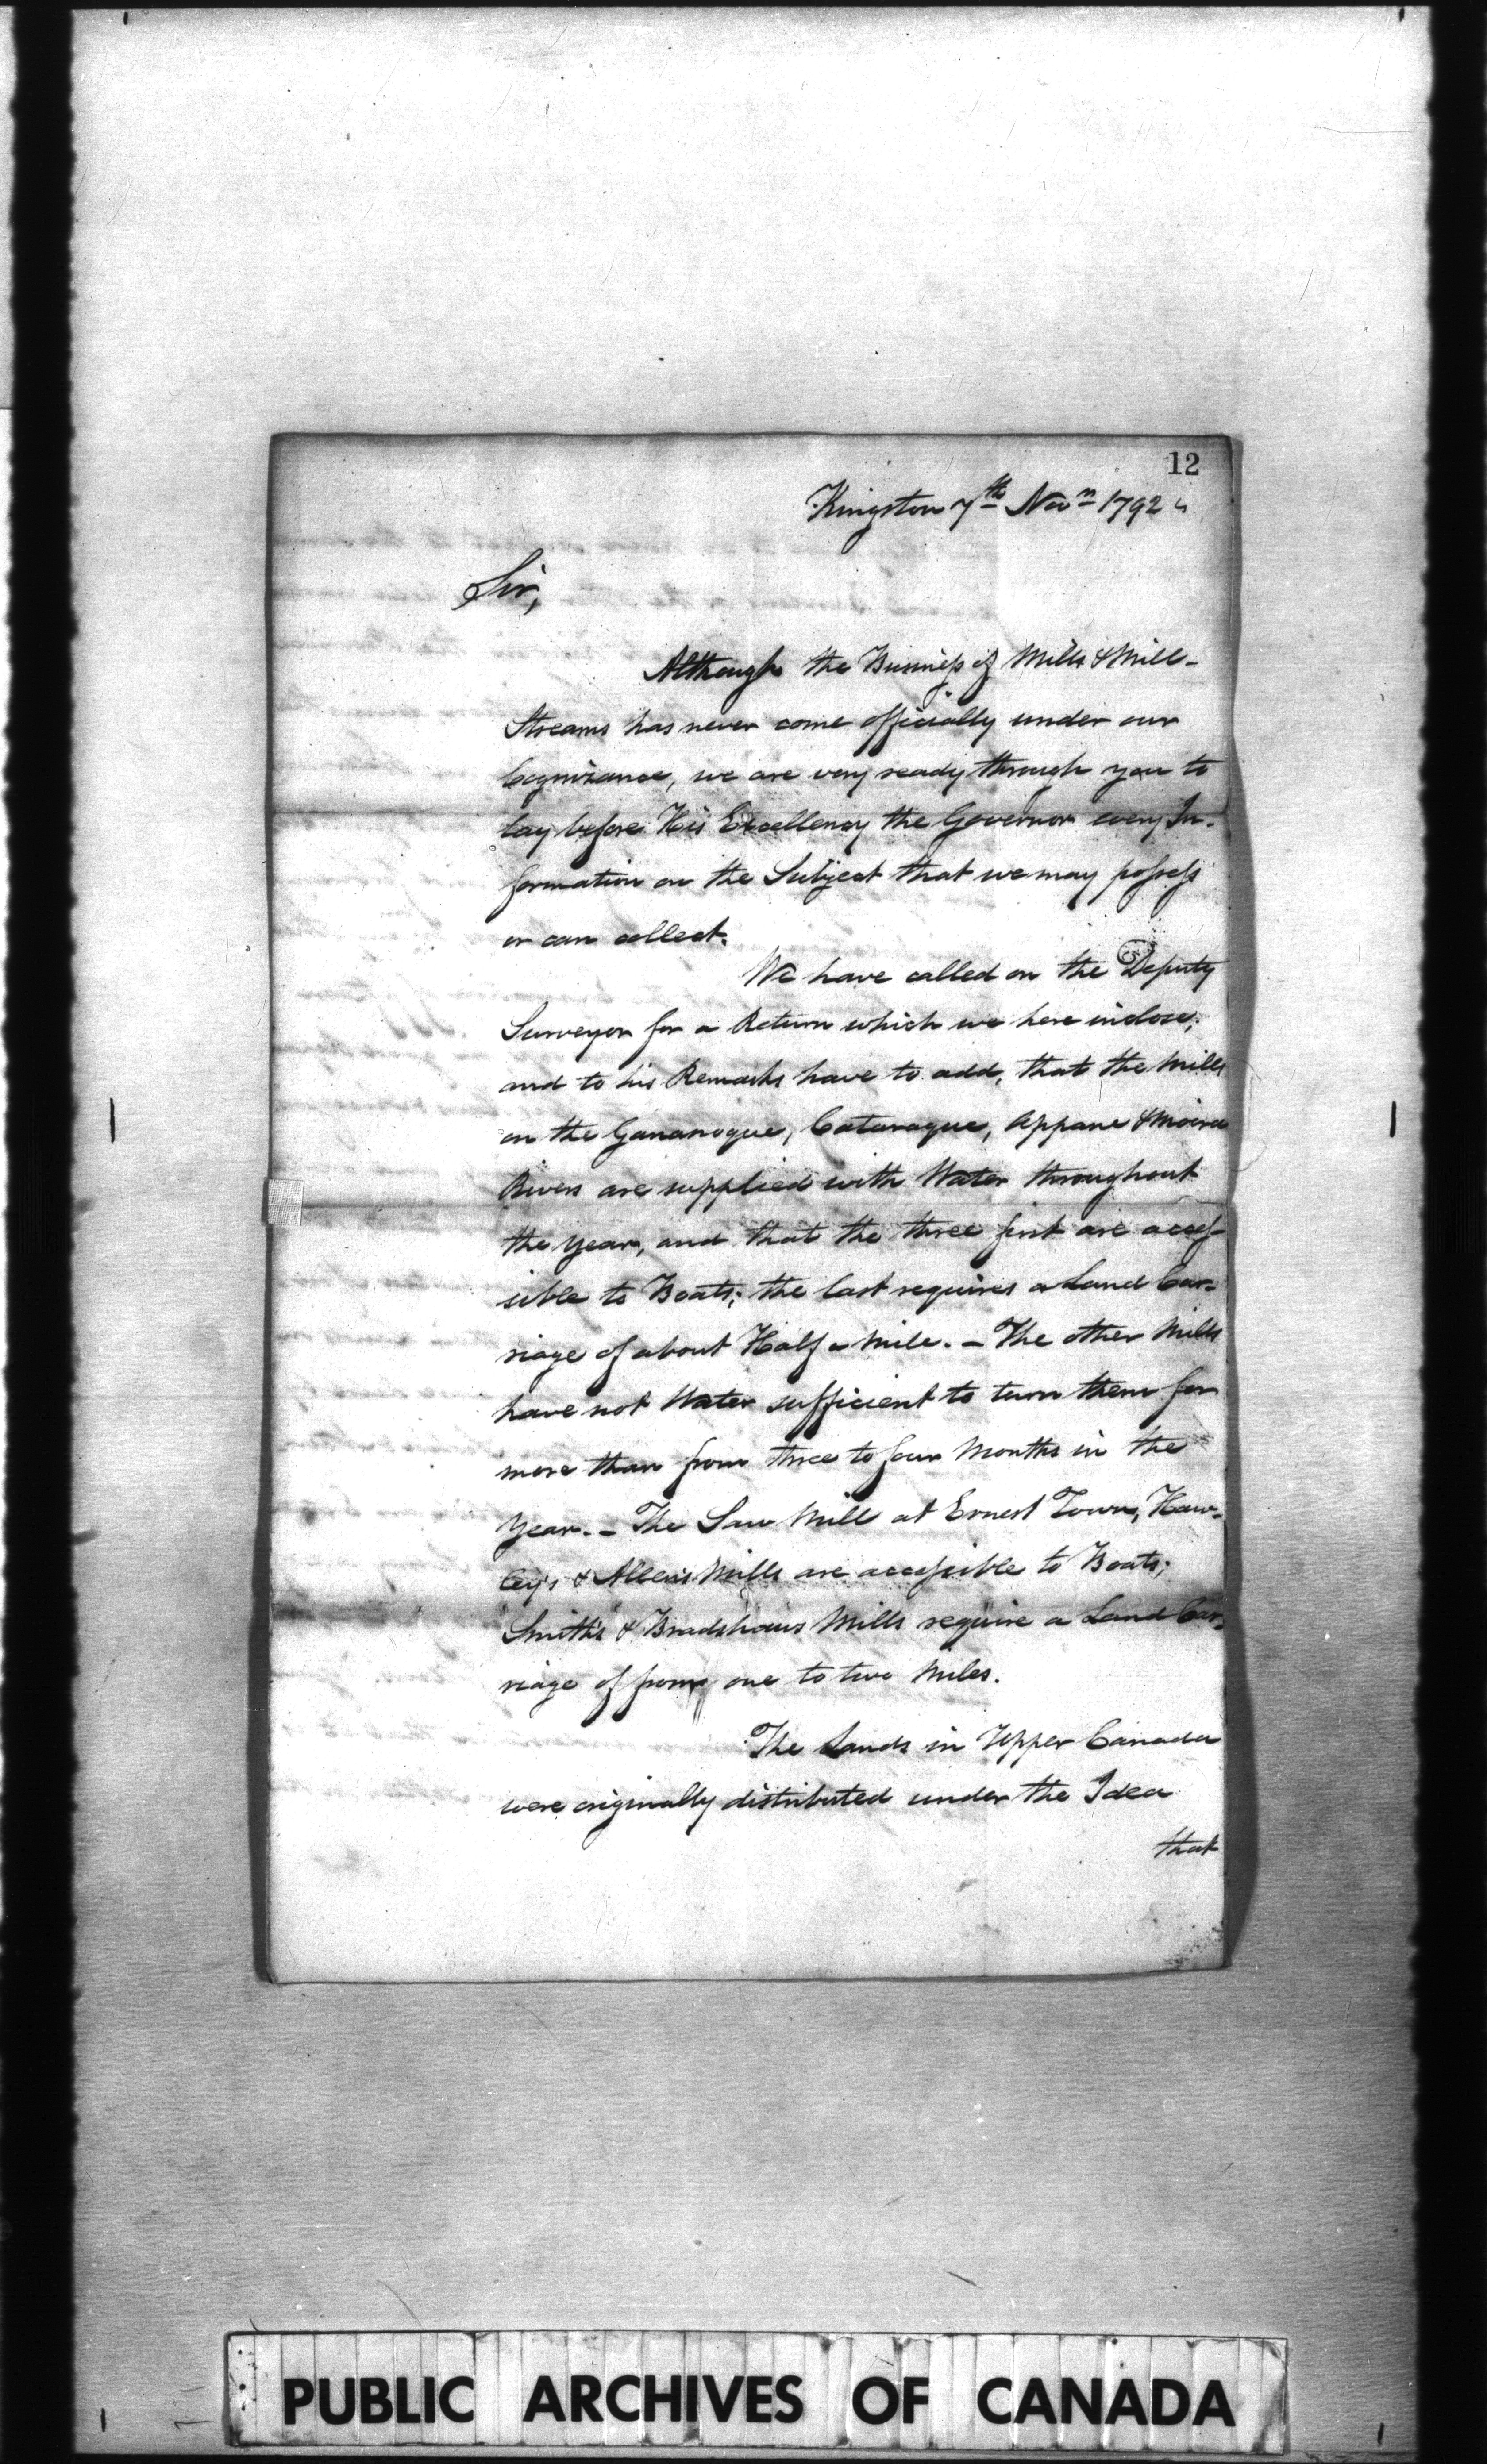 12
Kingston 7th Novr 1792
Sir,
Although the Business of Mills & Mill-
Streams has never come officially under our
Cognizance, we are very ready through you to
lay before His Excellency the Governor every In-
formation on the Subject that we may possess
or can collect.
We have called on the Deputy
Surveyor for a Return which we here inclose;
and to his Remarks have to add, that the Mills
on the Gananoque, Cataraque, Appane & Moira
Rivers are supplied with Water throughout
the Year, and that the three first are acces-
sible to Boats; the last requires a Land Car-
riage of about Half a Mile. - The other Mills
have not Water sufficient to turn them for
more than from three to four Months in the
Year. - The Saw Mill at Ernest Town, Haw-
ley's & Allen's Mills are accessible to Boats;
Smith's & Bradshaws Mills require a Land Car-
riage of from one to two Miles.
The Lands in Upper Canada
were originally distributed under the Idea
that
PUBLIC ARCHIVES OF CANADA